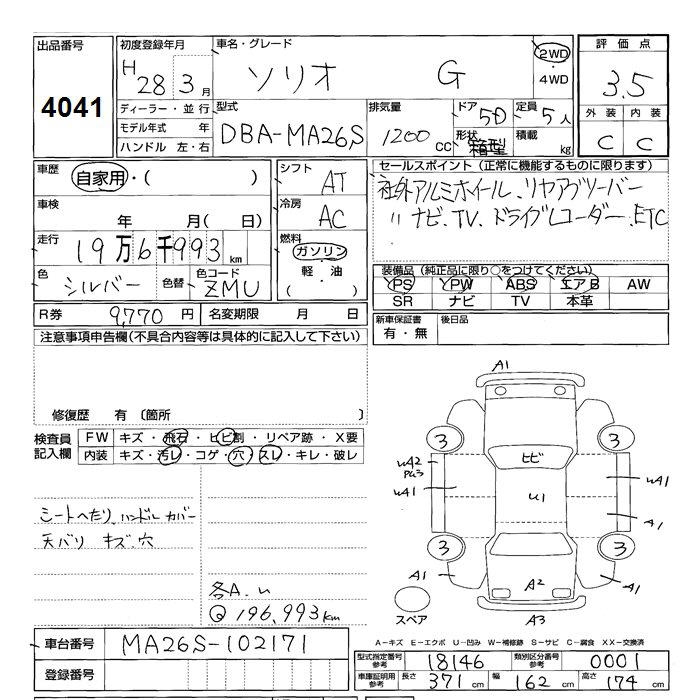 出品番号
4041
初度登録年月
H 28 3月
ディーラー・並行
モデル年式 年
ハンドル 左・右
車名・グレード
ソリオ G
2WD
・
4WD
評価点
3.5
外装 内装
C C
型式
DBA-MA26S
排気量
1200 CC
ドア
5D
形状
箱型
定員
5人
積載
kg
車歴
自家用・( )
車検
年 月( 日)
走行
19万6千993 km
色
シルバー
色替
色コード
ZMU
シフト
AT
冷房
AC
燃料
ガソリン
・
軽・油
( )
セールスポイント(正常に機能するものに限ります)
社外アルミホイール、リヤアブソーバー
〃 ナビ、TV、ドライブレコーダー、ETC
装備品(純正品に限り○をつけてください)
PS PW ABS エアB AW
SR ナビ TV 本革
R券 9,770円 名変期限 月 日
新車保証書
有・無
後日品
注意事項申告欄(不具合内容等は具体的に記入して下さい)
修復歴 有〔箇所 〕
検査員
記入欄
FW キズ・飛石・ヒビ割・リペア跡・X要
内装 キズ・汚レ・コゲ・穴・スレ・キレ・破レ
シートへたり、ハンドルカバー
天バリ キズ、穴
各A、U
Q 196,993km
A1
3
3
ヒビ
UA2
UA1
U1
UA1
A1
3
3
A1
A2
A1
スペア
A3
A-キズ E-エクボ U-凹み W-補修跡 S-サビ C-腐食 XX-交換済
車台番号 MA26S-102171
登録番号
型式指定番号
参考
18146
類別区分番号
参考
0001
車庫証明用
参考
長さ 371cm 幅 162cm 高さ 174cm